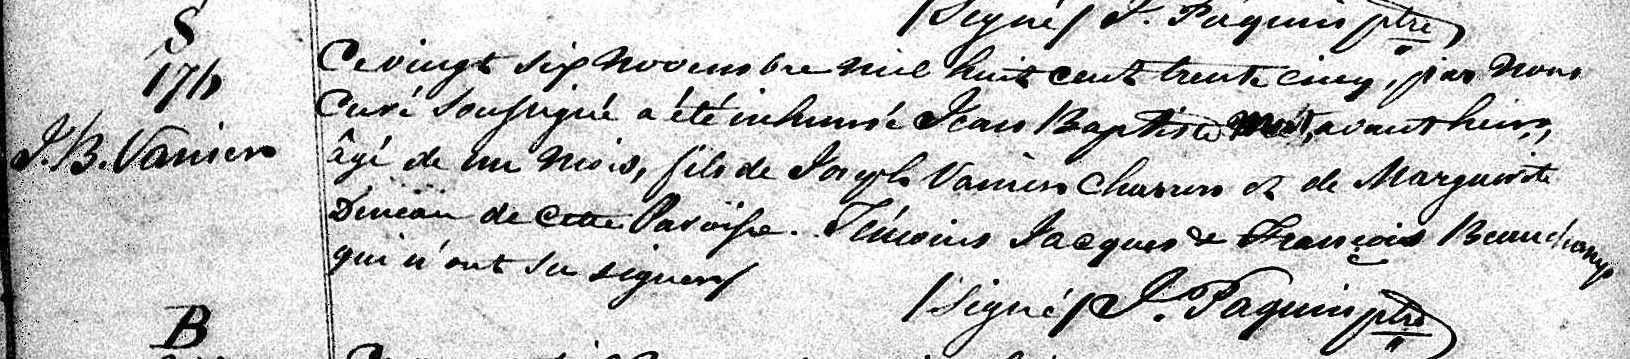 (Signé) J. Paquin ptre
S
176
J. B. Vanier
Ce vingt six novembre mil huit cent trente cinq, par nous
Curé soussigné a été inhumé Jean Baptiste mort, avant hier,
âgé de un mois, fils de Joseph Vanier charron & de Marguerite
Dineau de cette Paroisse. Témoins Jacques & François Beauchamp
qui n'ont su signer/
(Signé) J. Paquin ptre
B